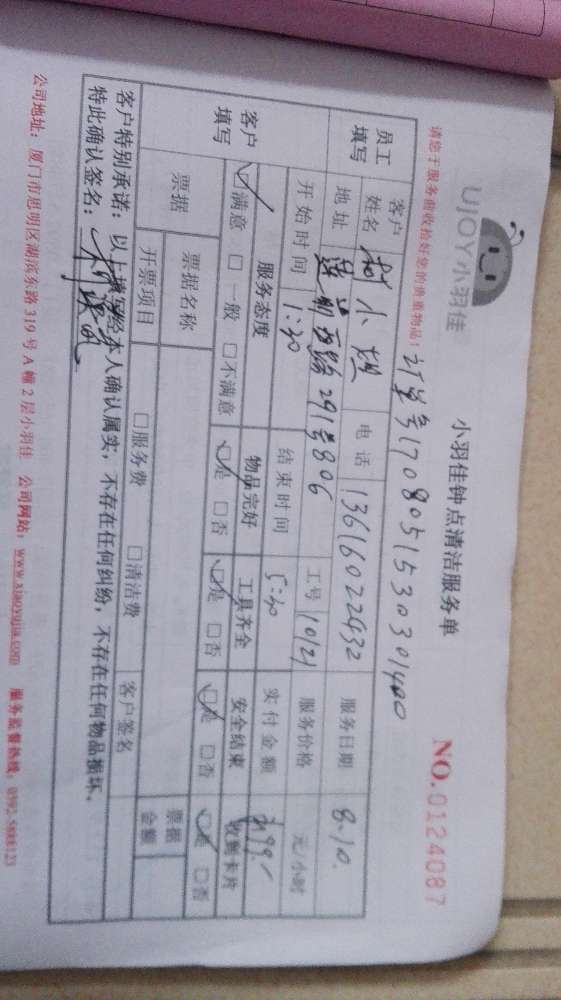 UJOY小羽佳
小羽佳钟点清洁服务单
NO.0124087
请您于服务前收捡好您的贵重物品!
订单号1708051530301400
员工填写
客户姓名 柯小姐 电话 13616022432 服务日期 8.10.
地址 莲前西路291号806 工号 10121 服务价格 元/小时
开始时间 1:30 结束时间 5:30 实付金额
客户填写
服务态度 物品完好 工具齐全 安全结束 收到卡片
☑满意 □一般 □不满意 ☑是 □否 ☑是 □否 ☑是 □否 ☑是 □否
票据 票据名称 客户签名 票据金额
开票项目 □服务费 □清洁费
客户特别承诺:以上填写经本人确认属实,不存在任何纠纷,不存在任何物品损坏,
特此确认签名:
公司地址:厦门市思明区湖滨东路319号A幢2层小羽佳 公司网站:www.xiaoyujia.com 服务监督热线:0592-5888123